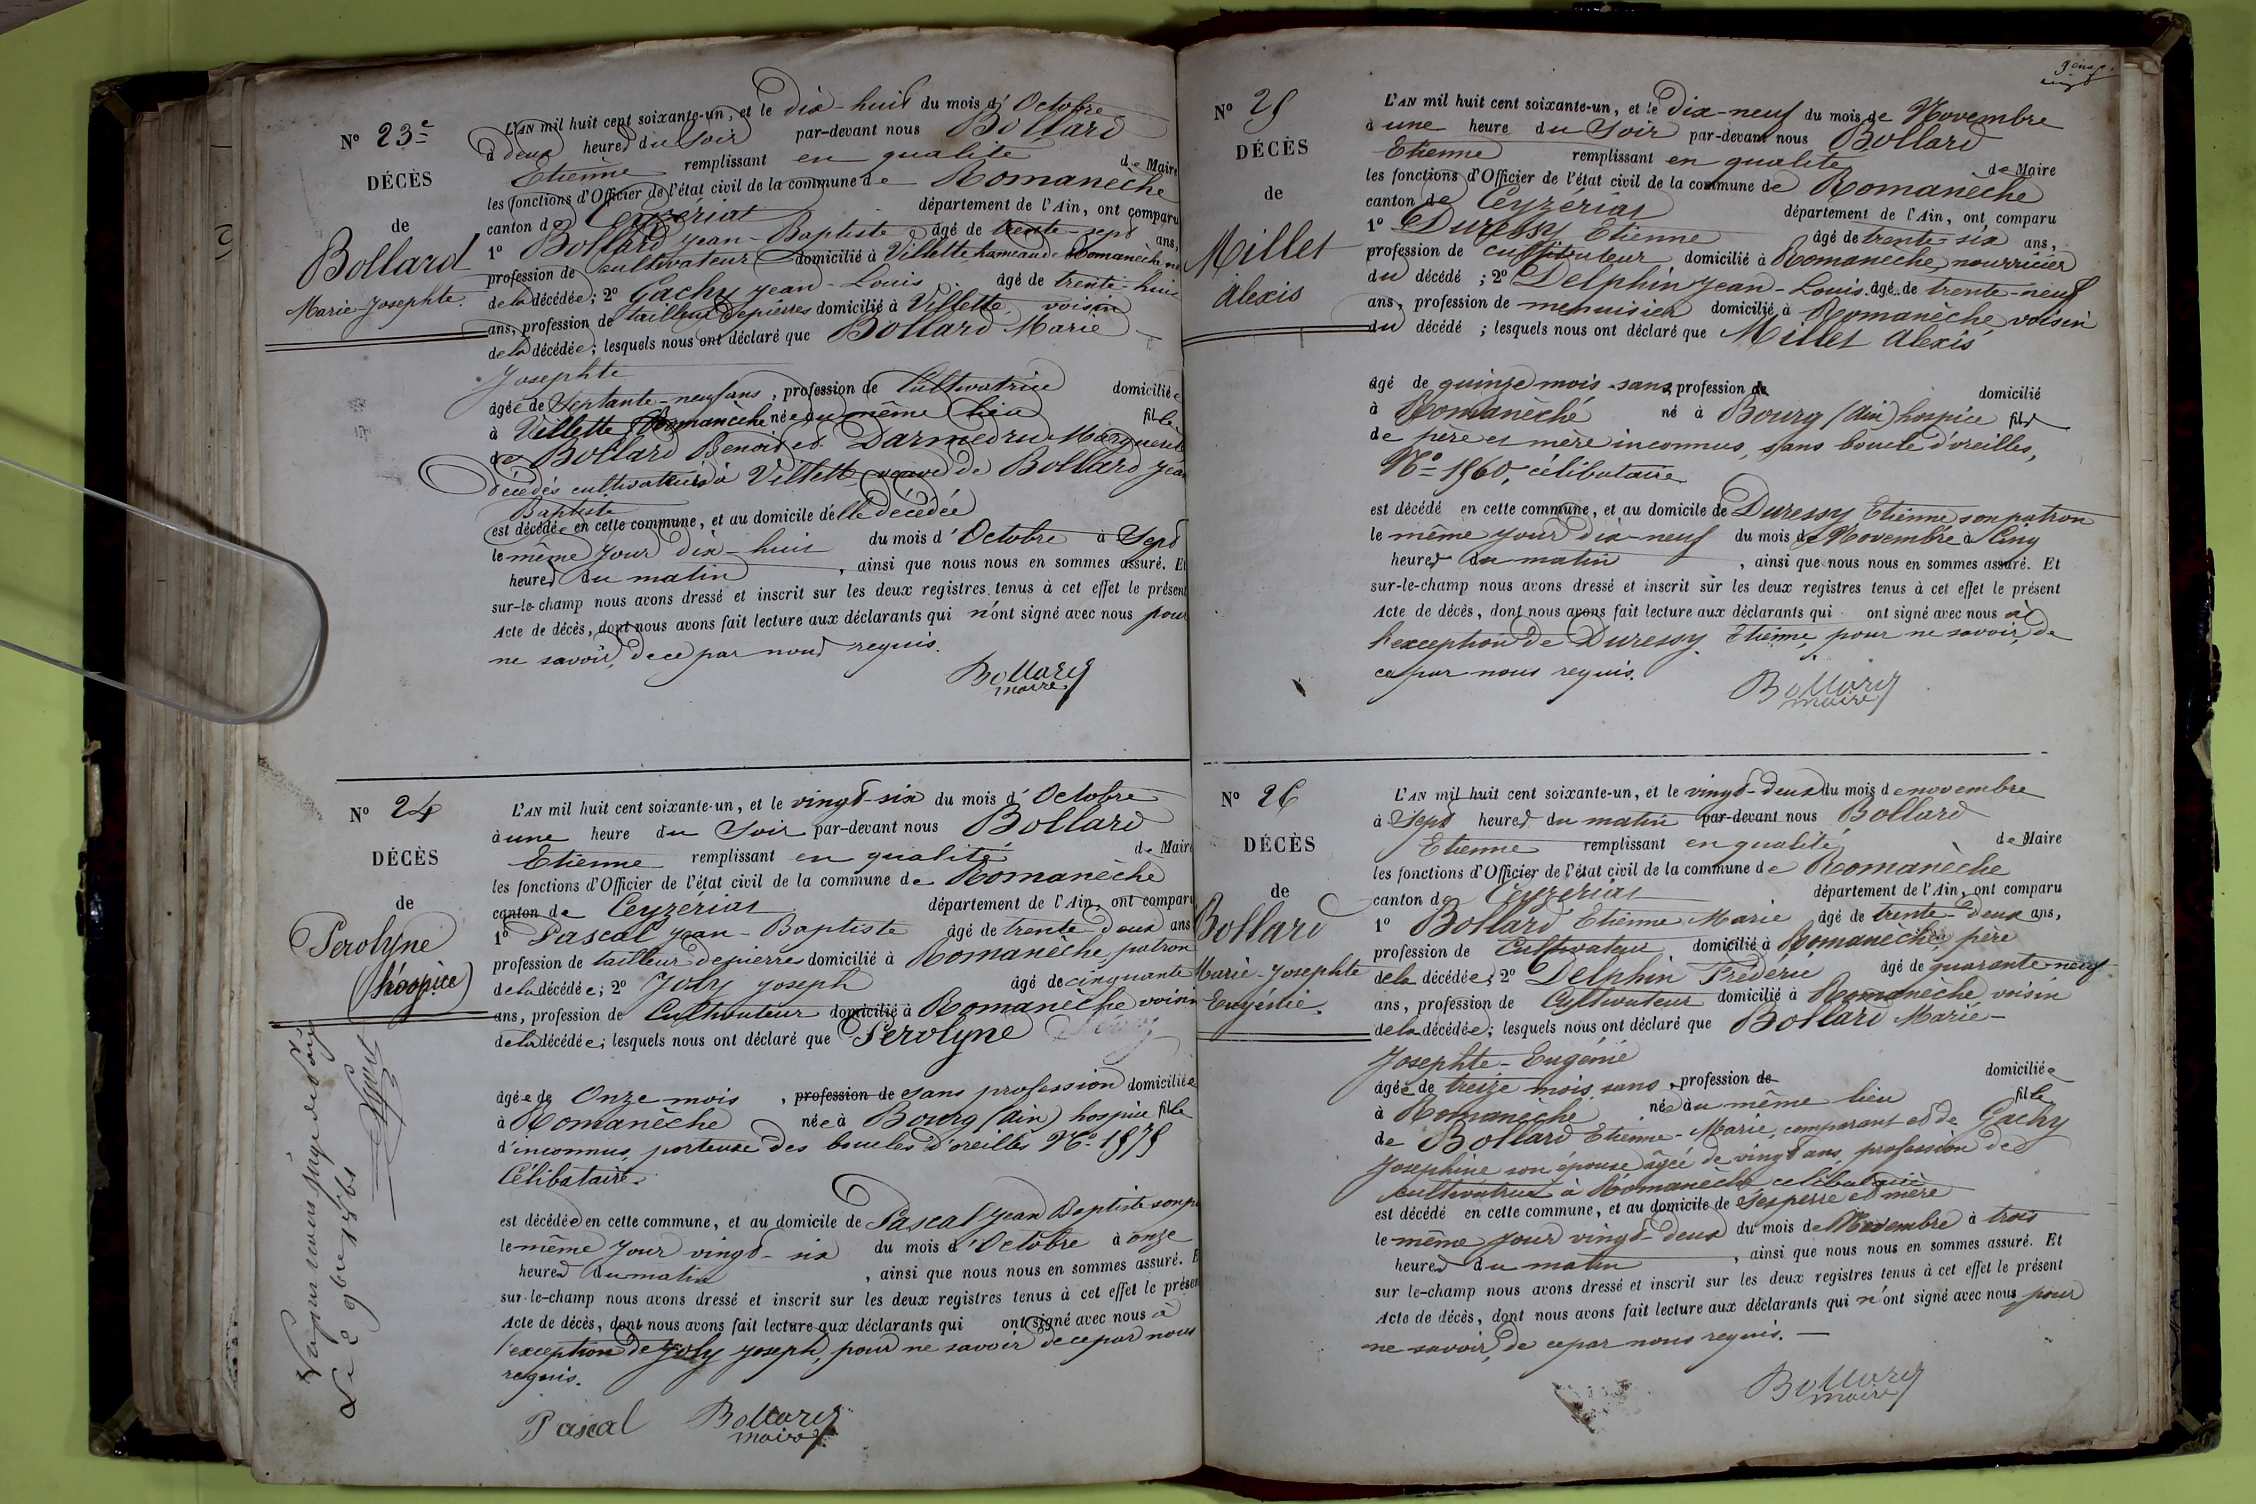 N° 23e
DÉCÈS
de
Bollard
Marie Josephte.
L'AN mil huit cent soixante-un, et le dix-huit du mois d'Octobre
à deux heures du soir par-devant nous Bollard
Etienne remplissant en qualité de Maire
les fonctions d'Officier de l'état civil de la commune de Romanèche
canton de Ceyzériat département de l'Ain, ont comparu
1° Bollard Jean-Baptiste âgé de trente-sept ans,
profession de cultivateur domicilié à Villette hameau de Romanèche
de la décédée; 2° Gachy Jean-Louis âgé de trente-huit
ans, profession de tailleur de pierres domicilié à Villette, voisin
de la décédée; lesquels nous ont déclaré que Bollard Marie
Josephte
âgée de Septante-neuf ans, profession de Cultivatrice domiciliée
à Villette Romanèche née au même lieu fille
de Bollard Benoit et Darmedru Marguerite
décédés cultivateurs à Villette veuve de Bollard Jean
Baptiste
est décédée en cette commune, et au domicile d'elle décédée
le même jour dix-huit du mois d'Octobre à Sept
heures du matin, ainsi que nous nous en sommes assuré. Et
sur-le-champ nous avons dressé et inscrit sur les deux registres tenus à cet effet le présent
Acte de décès, dont nous avons fait lecture aux déclarants qui n'ont signé avec nous pour
ne savoir, de ce par nous requis.
Bollard
maire
N° 24
DÉCÈS
de
Perolyne
(hospice)
Vu par nous juge de Paix
Le 2 9bre 1861
L'AN mil huit cent soixante-un, et le vingt-six du mois d'Octobre
à une heure du Soir par-devant nous Bollard
Etienne remplissant en qualité de Maire
les fonctions d'Officier de l'état civil de la commune de Romanèche
canton de Ceyzériat département de l'Ain, ont comparu
1° Pascal Jean-Baptiste âgé de trente deux ans
profession de tailleur de pierres domicilié à Romanèche patron
de la décédée; 2° Joly Joseph âgé de cinquante
ans, profession de Cultivateur domicilié à Romanèche voisin
de la décédée; lesquels nous ont déclaré que Perolyne
âgée de Onze mois, profession de sans profession domiciliée
à Romanèche née à Bourg (Ain) hospice fille
d'inconnus, porteuse des boucles d'oreilles N° 1878
Célibataire.
est décédée en cette commune, et au domicile de Pascal Jean Baptiste son
le même jour vingt-six du mois d'Octobre à onze
heures du matin, ainsi que nous nous en sommes assuré. E
sur-le-champ nous avons dressé et inscrit sur les deux registres tenus à cet effet le présen
Acte de décès, dont nous avons fait lecture aux déclarants qui ont signé avec nous à
l'exception de Joly Joseph, pour ne savoir de ce par nous
requis.
Pascal Bollard
maire
N° 25
DÉCÈS
de
Millet
Alexis
L'AN mil huit cent soixante-un, et le dix-neuf du mois de Novembre
à une heure du Soir par-devant nous Bollard
Etienne remplissant en qualité de Maire
les fonctions d'Officier de l'état civil de la commune de Romanèche
canton de Ceyzériat département de l'Ain, ont comparu
1° Duressy Etienne âgé de trente-six ans,
profession de cultivateur domicilié à Romanèche, nourricier
du décédé; 2° Delphin Jean-Louis âgé de trente-neuf
ans, profession de menuisier domicilié à Romanèche voisin
du décédé; lesquels nous ont déclaré que Millet Alexis
âgé de quinze mois sans profession de domicilié
à Romanèche né à Bourg (Ain) hospice fils
de père et mère inconnus, sans boucle d'oreilles,
N° 1860, célibataire
est décédé en cette commune, et au domicile de Duressy Etienne son patron
le même jour dix-neuf du mois de Novembre à Cinq
heures du matin, ainsi que nous nous en sommes assuré. Et
sur-le-champ nous avons dressé et inscrit sur les deux registres tenus à cet effet le présent
Acte de décès, dont nous avons fait lecture aux déclarants qui ont signé avec nous à
l'exception de Duressy Etienne, pour ne savoir, de
ce par nous requis.
Bollard
maire
N° 26
DÉCÈS
de
Bollard
Marie-Josephte
Eugénie.
L'AN mil huit cent soixante-un, et le vingt-deux du mois de novembre
à Sept heures du matin par-devant nous Bollard
Etienne remplissant en qualité de Maire
les fonctions d'Officier de l'état civil de la commune de Romanèche
canton de Ceyzériat département de l'Ain, ont comparu
1° Bollard Etienne Marie âgé de trente-deux ans,
profession de Cultivateur domicilié à Romanèche père
de la décédée; 2° Delphin Fréderic âgé de quarante-neuf
ans, profession de Cultivateur domicilié à Romanèche voisin
de la décédée; lesquels nous ont déclaré que Bollard Marie-
Josephte-Eugénie
âgée de treize mois sans profession de domiciliée
à Romanèche née au même lieu fille
de Bollard Etienne-Marie, comparant et de Gachy
Josephine son épouse âgée de vingt ans, profession de
cultivatrice à Romanèche célibataire
est décédé en cette commune, et au domicile de Ses perre et mère
le même jour vingt-deux du mois de Novembre à trois
heures du matin, ainsi que nous nous en sommes assuré. Et
sur le-champ nous avons dressé et inscrit sur les deux registres tenus à cet effet le présent
Acte de décès, dont nous avons fait lecture aux déclarants qui n'ont signé avec nous pour
ne savoir, de ce par nous requis.—
Bollard
maire